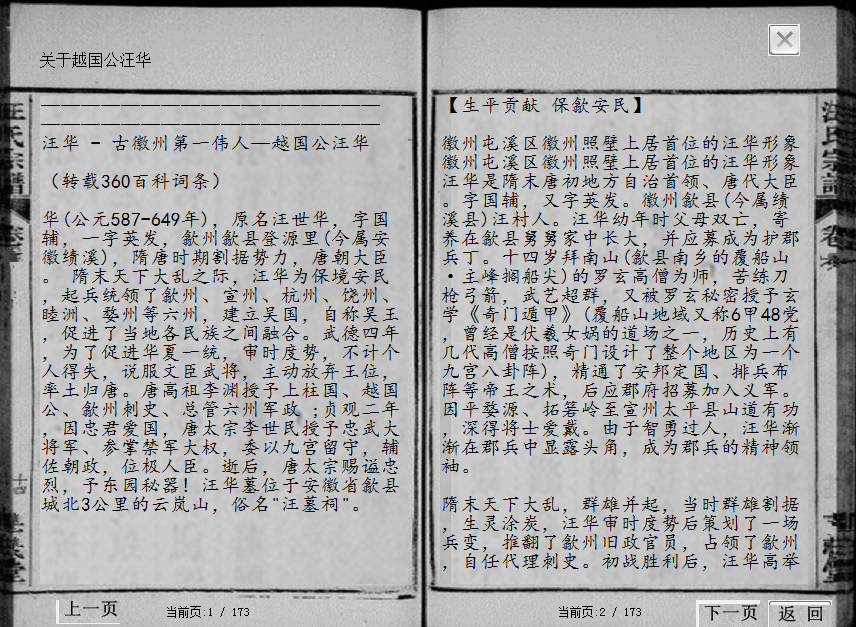 关于越国公汪华
汪华 - 古徽州第一伟人—越国公汪华
（转载360百科词条）
华(公元587-649年)，原名汪世华，字国
辅，一字英发，歙州歙县登源里(今属安
徽绩溪)，隋唐时期割据势力，唐朝大臣
。 隋末天下大乱之际，汪华为保境安民
，起兵统领了歙州、宣州、杭州、饶州、
睦洲、婺州等六州，建立吴国，自称吴王
，促进了当地各民族之间融合。武德四年
，为了促进华夏一统，审时度势，不计个
人得失，说服文臣武将，主动放弃王位，
率土归唐。唐高祖李渊授予上柱国、越国
公、歙州刺史、总管六州军政 ;贞观二年
，因忠君爱国，唐太宗李世民授予忠武大
将军、参掌禁军大权，委以九宫留守，辅
佐朝政，位极人臣。逝后，唐太宗赐谥忠
烈，予东园秘器！汪华墓位于安徽省歙县
城北3公里的云岚山，俗名"汪墓祠"。
【生平贡献 保歙安民】
徽州屯溪区徽州照壁上居首位的汪华形象
徽州屯溪区徽州照壁上居首位的汪华形象
汪华是隋末唐初地方自治首领、唐代大臣
。字国辅，又字英发。徽州歙县(今属绩
溪县)汪村人。汪华幼年时父母双亡，寄
养在歙县舅舅家中长大，并应募成为护郡
兵丁。十四岁拜南山(歙县南乡的覆船山
·主峰搁船尖)的罗玄高僧为师，苦练刀
枪弓箭，武艺超群，又被罗玄秘密授予玄
学《奇门遁甲》(覆船山地域又称6甲48党
，曾经是伏羲女娲的道场之一，历史上有
几代高僧按照奇门设计了整个地区为一个
九宫八卦阵)，精通了安邦定国、排兵布
阵等帝王之术，后应郡府招募加入义军。
因平婺源、拓箬岭至宣州太平县山道有功
，深得将士爱戴。由于智勇过人，汪华渐
渐在郡兵中显露头角，成为郡兵的精神领
袖。
隋末天下大乱，群雄并起，当时群雄割据
，生灵涂炭，汪华审时度势后策划了一场
兵变，推翻了歙州旧政官员，占领了歙州
，自任代理刺史。初战胜利后，汪华高举
上一页
当前页:1 / 173
当前页:2 / 173
下一页
返 回